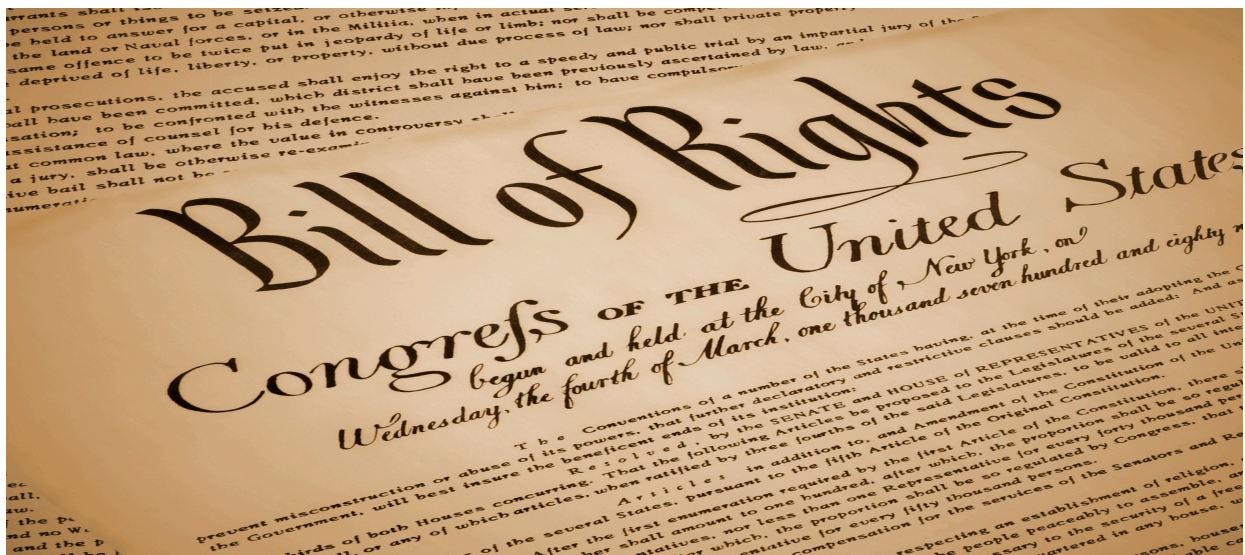 shall
persons or things to be seized
be held to answer for a capital, or otherwise
the land or Naval forces, or in the Militia, when in actual
same offence to be twice put in jeopardy of life or limb; nor shall be compe
deprived of life, liberty, or property, without due process of law; nor shall private property
al prosecutions, the accused shall enjoy the right to a speedy and public trial by an impartial jury of the
hall have been committed, which district shall have been previously ascertained by law,
sation; to be confronted with the witnesses against him; to have compulsor
ssistance of counsel for his defence.
at common law, where the value in controversy
a jury, shall be otherwise re-exami
ive bail shall not be
numeratio
Bill of Rights
Congreſs OF THE United States
begun and held at the City of New York, on
Wednesday, the fourth of March, one thousand seven hundred and eighty n
The Conventions of a number of the States having, at the time of their adopting the C
prevent misconstruction or abuse of its powers, that further declaratory and restrictive clauses should be added: And as
the Government, will best insure the beneficent ends of its institution:
Resolved, by the SENATE and HOUSE of REPRESENTATIVES of the UNIT
hirds of both Houses concurring. That the following Articles be proposed to the Legislatures of the several S
ll, or any of which articles, when ratified by three fourths of the said Legislatures, to be valid to all inte
Articles in addition to, and Amendment of the Constitution of the Uni
of the several States, pursuant to the fifth Article of the Original Constitution.
After the first enumeration required by the first Article of the Constitution, there s
ber shall amount to one hundred, after which, the proportion shall be so regul
entatives, nor less than one Representative for every forty thousand per
or which, the proportion shall be so regulated by Congress, that
entative for every fifty thousand persons.
compensation for the services of the Senators and Re
respecting an establishment of religion,
the people peaceably to assemble, a
ssary to the security of a free
artered in any house, w